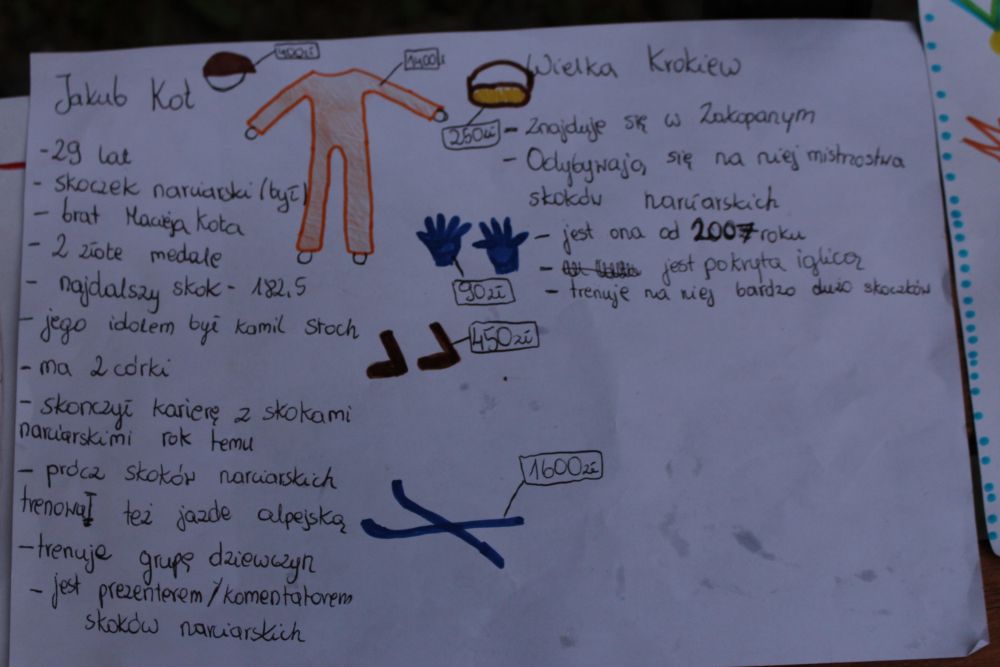 Jakub Kot
- 29 lat
- skoczek narciarski (był)
- brat Macieja Kota
- 2 złote medale
- najdalszy skok - 182,5
- jego idolem był kamil stoch
- ma 2 córki
- skonczył karierę z skokami
narciarskimi rok temu
- prócz skoków narciarskich
trenował też jazde alpejską
- trenuje grupę dziewczyn
- jest prezenterem/komentatorem
skoków narciarskich
400zł
1400zł
250zł
90zł
450zł
1600zł
Wielka Krokiew
- Znajduje się w Zakopanym
- Odybywają się na niej mistrostwa
skoków narciarskich
- jest ona od 2007 roku
- jest pokryta iglicą
- trenuje na niej bardzo dużo skoczków